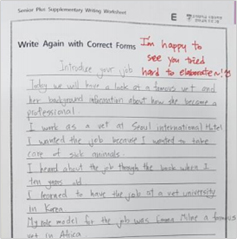 Senior Plus Supplementary Writing Worksheet
E
Write Again with Correct Forms
I'm happy to
see you tried
hard to elaborate~!
Introduce your job
Today we will have a look at a famous vet and
her background information about how she became a
professional
I work as a vet at Seoul international Hotel
I wanted the job because I wanted to take
care of sick animals
I heard about the job through the book when I
ten years old
I learned to have the job at a vet university
in Korea
My role model for the job was Emma Milne a famous
vet in Africa